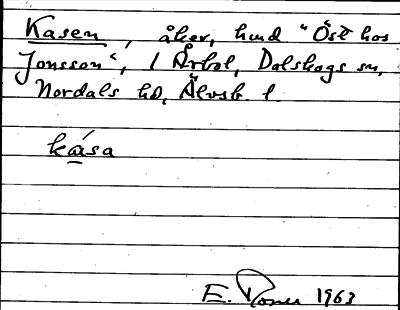 Kasen, åker, hmd "Öst hos
Jonsson", 1 Årbol, Dalskogs sn,
Nordals hd, Älvsb. l.
kása
E. 1963